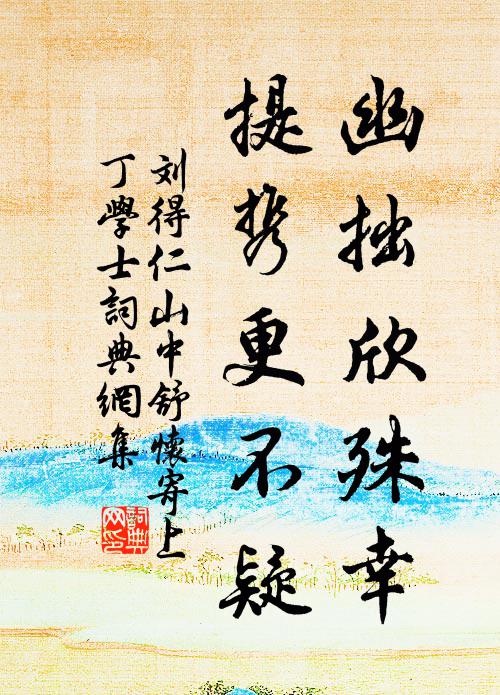 幽拙欣殊幸
提携更不疑
刘得仁山中舒懷寄上
丁學士詞典網集
詞典网印